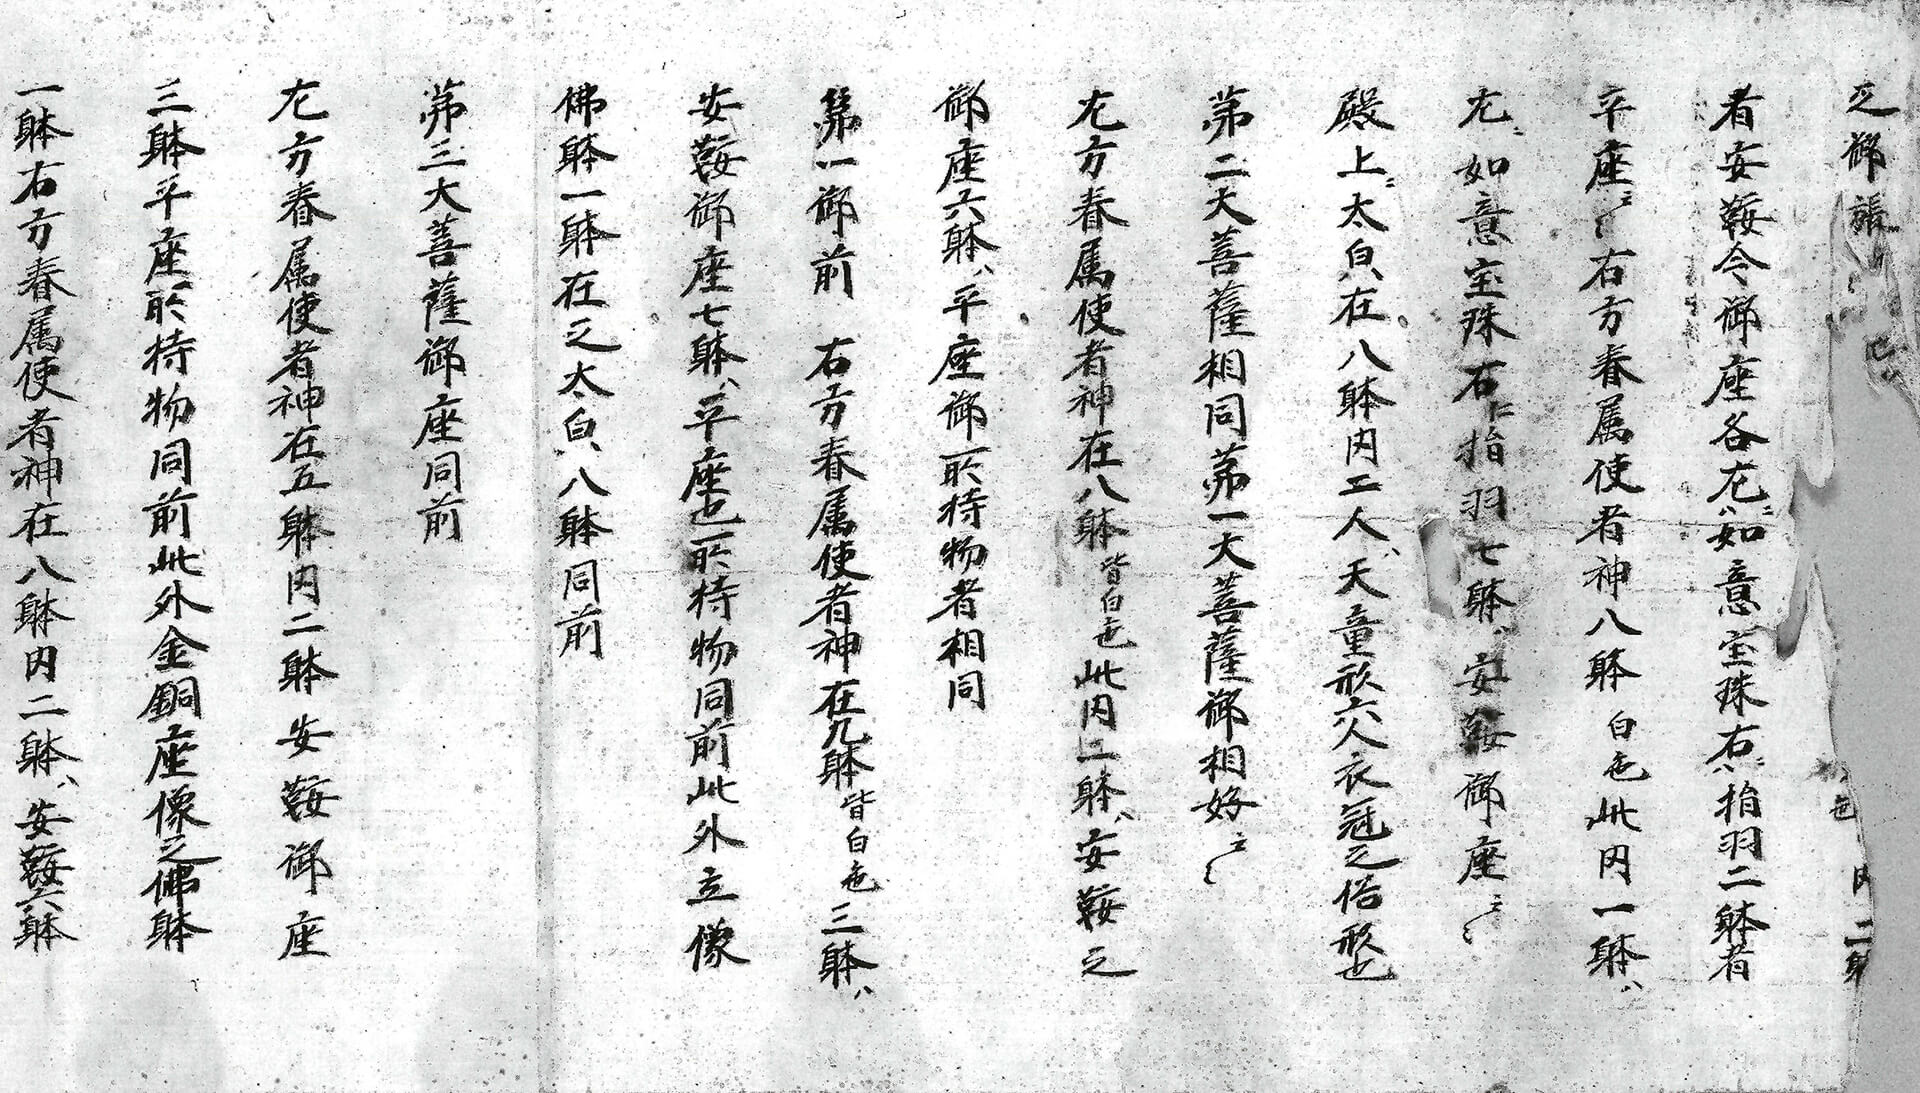 之御張 色 内二躰
者安鞍令御座各左ニハ如意宝珠右ニハ指羽二躰者
平座ニ〻右方眷属使者神八躰白色此内一躰ハ
左ニ如意宝珠右ニ指羽七躰ハ安鞍御座ニ〻
殿上ニ太白ハ在八躰内二人ハ天童形六人衣冠之俗形也
第二大菩薩相同第一大菩薩御相好ニ〻
左方眷属使者神在八躰皆白色此内二躰ハ安鞍之
御座六躰ハ平座御所持物者相同
第一御前 右方眷属使者神在九躰皆白色三躰ハ
安鞍御座七躰ハ平座也所持物同前此外立像
佛躰一躰在之太白ハ八躰同前
第三大菩薩御座同前
左方眷属使者神在五躰内二躰安鞍御座
三躰平座所持物同前此外金銅座像之佛躰
一躰右方眷属使者神在八躰内二躰ハ安鞍六躰